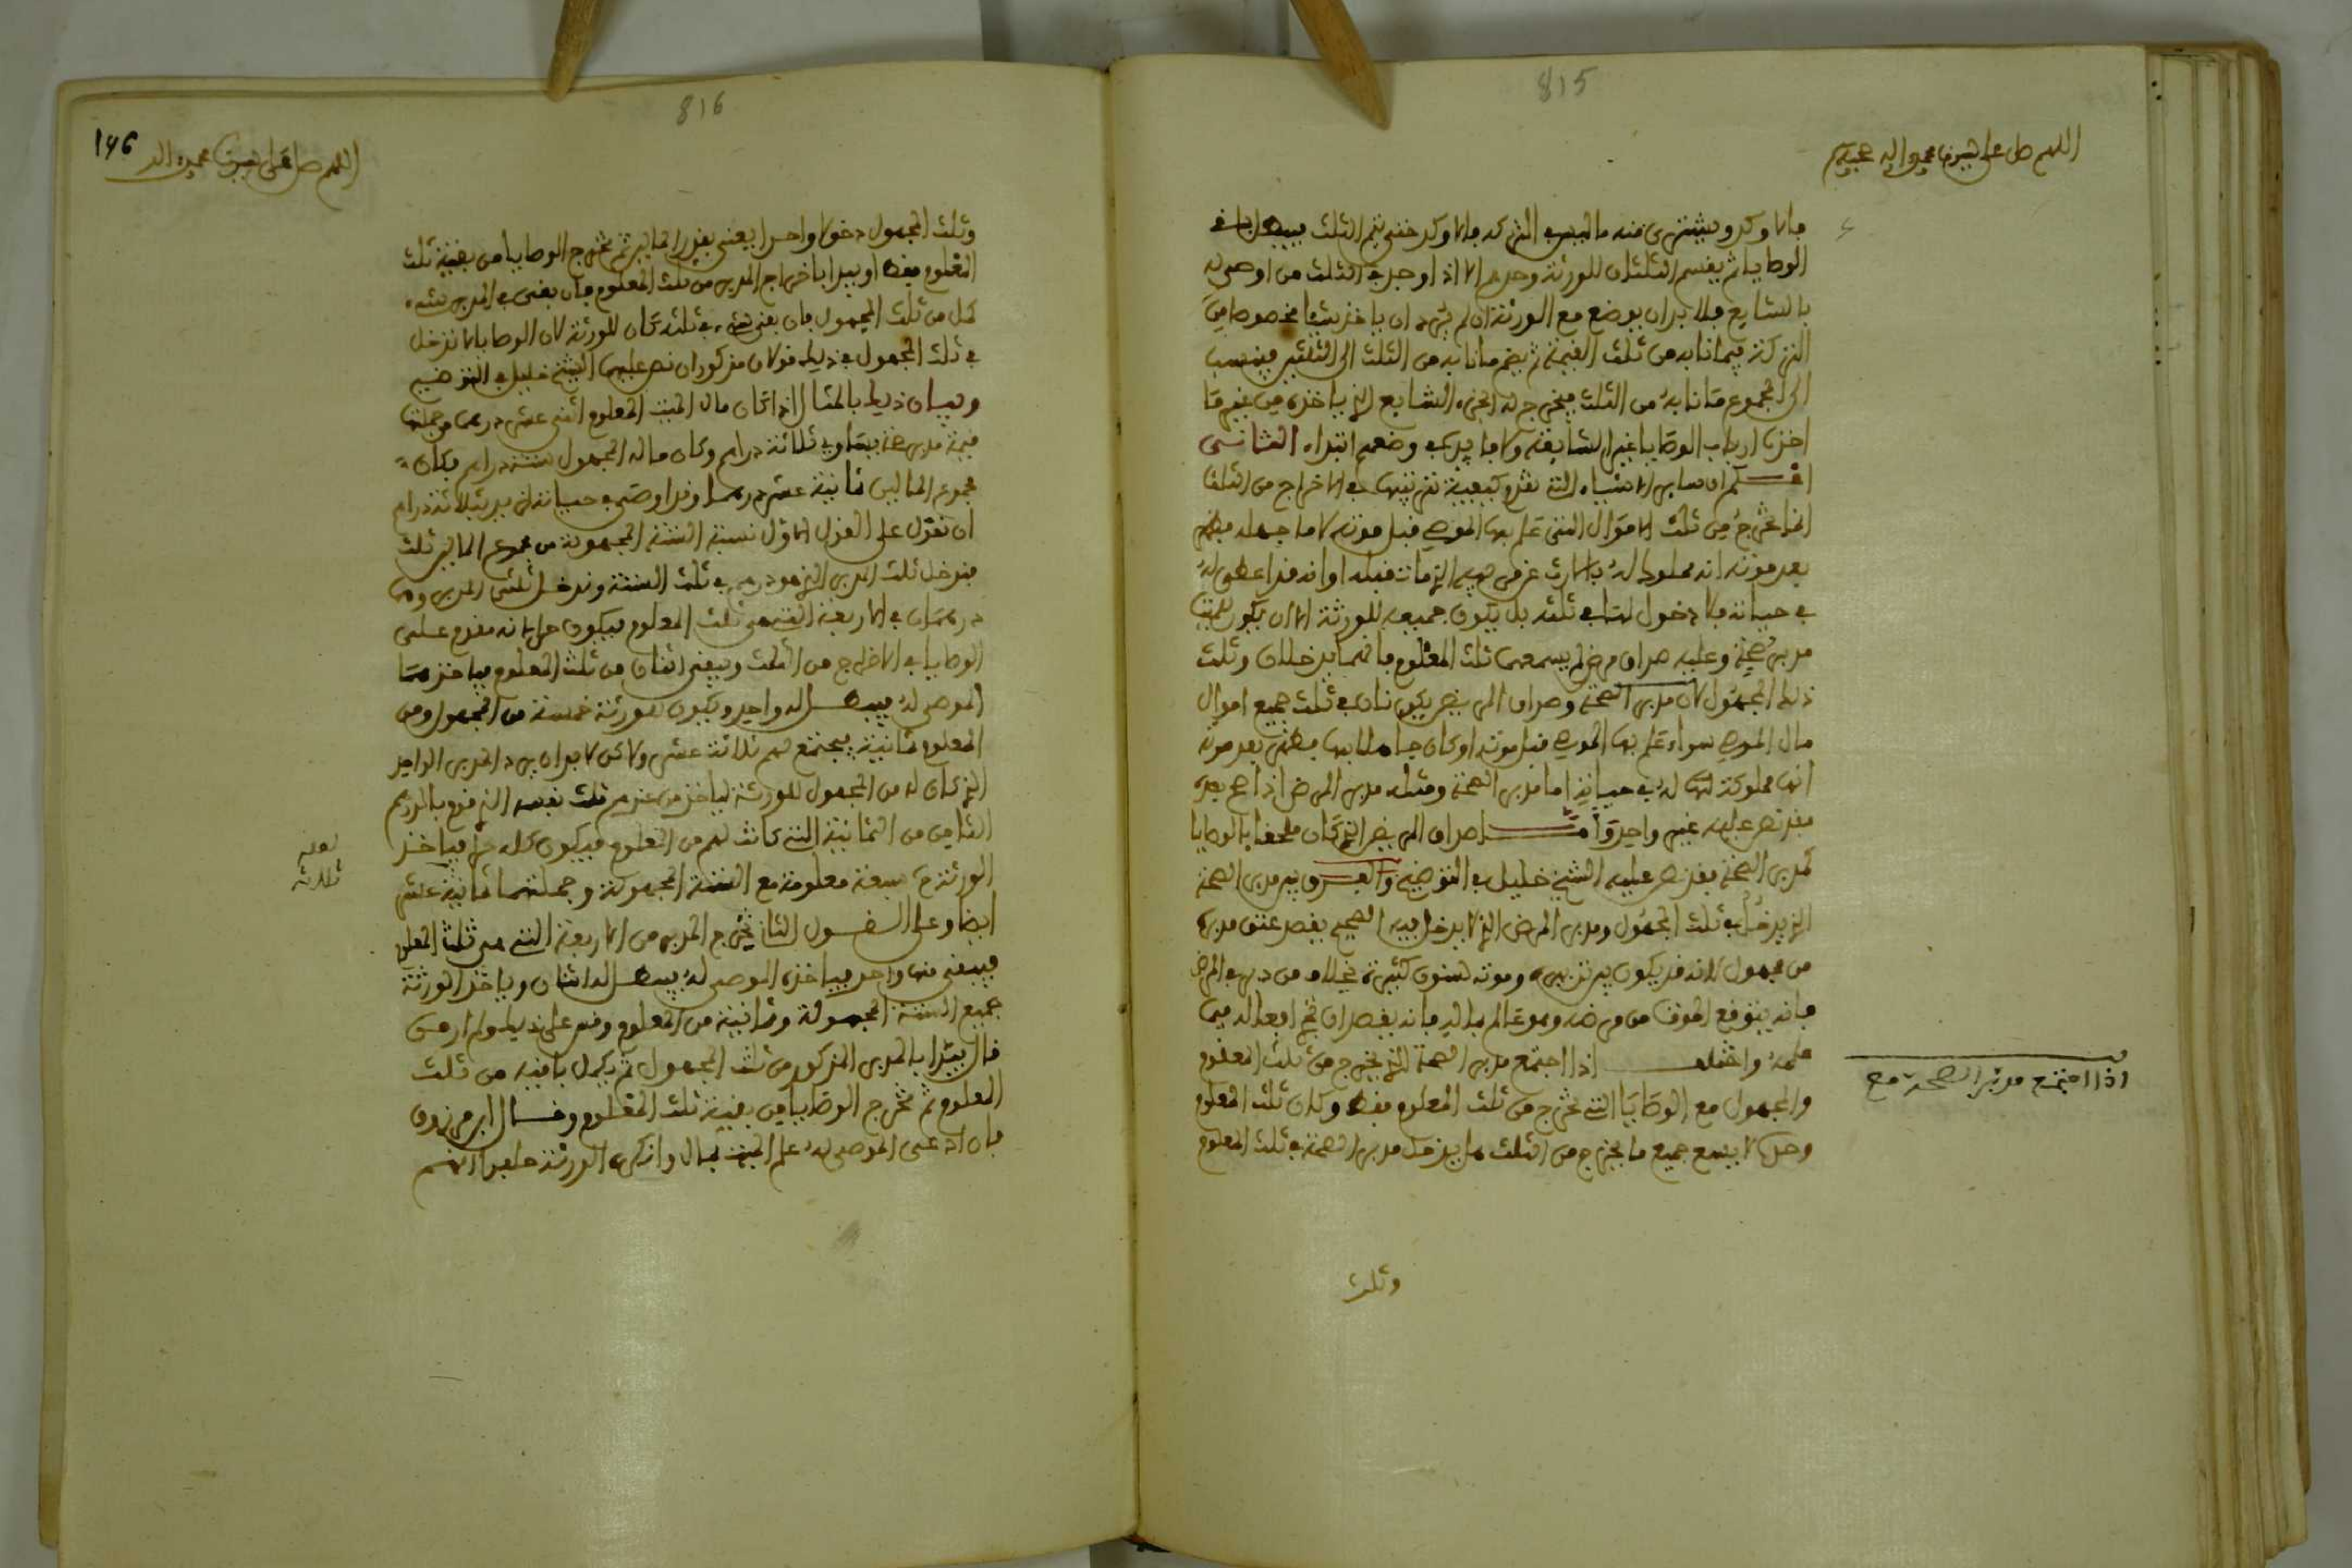 815
اللهم صل على سيدنا محمد واله وصحبه وسلم
الوصايا ثم يقسم الثلثان للورثة وحدهم الا اذا وجد في الثلث من اوصى له
بالشايع فلا بد ان يوضع مع الورثة ان لم يرد ان ياخذ شيئا مخصوصا من
التركة فيما نابه من ثلث القيمة ثم يضم ما نابه من الثلث الى الثلثين فينسب
الى المجموع ما نابه من الثلث فيخرج له الجزء الشايع الذي ياخذه من غير ما
اخذه ارباب الوصايا غير الشايعة ولا بد في وضعه ابتداء الثاني
اعلم ان ساير الاشياء التي تقدم كيفية ترتيبها في الاخراج من الثلث
انما تخرج من ثلث الاموال التي علم بها الموصي قبل موته لا ما جهله فظهر
في حياته فلا دخول لها في ثلثه بل يكون جميعه للورثة الا ان يكون للميت
مدبر صحة وعليه صداق مرض لم يسعهما ثلث المعلوم فانهما يدخلان وثلث
ذلك المجهول لان مدبر الصحة وصداق المريض يكونان في ثلث جميع اموال
مال الموصي سواء علم بها الموصي قبل موته او كان جاهلا بها فظهر بعد موته
انها مملوكة له في حياته اما مدبر الصحة ومثله مدبر المرض اذا صح بعده
فقد نص عليه غير واحد وأما صداق المريض الذي كان ملحقا بالوصايا
كمدبر الصحة فقد نص عليه الشيخ خليل في التوضيح والفرق بين مدبر الصحة
الذي يدخل في ثلث المجهول ومدبر المرض الذي لا يدخل فيه ان الصحيح يقصد عتق مدبره
من مجهول لانه قد يكون بين تدبيره وموته سنون كثيرة بخلاف من دبر في المرض
فانه يتوقع الموت من مرضه وهو عالم بماله فانه يقصد ان تجري افعاله فيما
علمه واختلف اذا اجتمع مدبر الصحة الذي يخرج من ثلث المعلوم
والمجهول مع الوصايا التي تخرج من ثلث المعلوم فقط وكان ثلث المعلوم
وحده لا يسع جميع ما يخرج من الثلث هل يدخل مدبر الصحة في ثلث المعلوم
اذا اجتمع مدبر الصحة مع
وثلث
816
146
اللهم صل على سيدنا محمد واله
وثلث المجهول دخولا واحدا يعني بقدر المالين ثم تخرج الوصايا من بقية ثلث
المعلوم فقط او يبدا باخراج المدبر من ثلث المعلوم فان بقي في المدبر شيء
كمل من ثلث المجهول فان بقي شيء في ثلثه كان للورثة لان الوصايا لا تدخل
في ثلث المجهول في ذلك قولان مذكوران نص عليهما الشيخ خليل في التوضيح
وبيان ذلك بالمثال اذا كان مال الميت المعلوم اثني عشر درهما من جملتها
قيمة مدبر صحة يساوي ثلاثة دراهم وكان ماله المجهول ستة دراهم فكان
مجموع المالين ثمانية عشر درهما وقد اوصى في حياته لزيد بثلاثة دراهم
ان تقول على القول الاول نسبة الستة المجهولة من مجموع المالين ثلث
فيدخل ثلث المدبر الذي هو درهم في ثلث الستة ويدخل ثلثي المدبر وهما
درهمان في الاربعة التي هي ثلث المعلوم فيكون حرا لانه مقدم على
الوصايا في الاخراج من الثلث ويبقى اثنان من ثلث المعلوم فياخذهما
الموصى له فيبطل له واحد ويكون للورثة خمسة من المجهول ومن
المعلوم ثمانية فيجتمع لهم ثلاثة عشر ولكن لا بد ان يرد المدبر الواحد
الذي كان له من المجهول للورثة لياخذ من عندهم ثلث نفسه الذي قوم بالدرهم
الثامن من الثمانية التي كانت لهم من المعلوم فيكون كله حرا فياخذ
الورثة سبعة معلومة مع الستة المجهولة وجملتهما ثمانية عشر
لعله
ثلاثة
ايضا وعلى القول الثاني يخرج المدبر من الاربعة التي هي ثلث المعلوم
فيبقى منها واحد فياخذه الموصى له فيبطل له اثنان وياخذ الورثة
جميع الستة المجهولة وثمانية من المعلوم وقس على ذلك ولم ار من
قال يبتدا بالمدبر المذكور من ثلث المجهول ثم يكمل باقيه من ثلث
المعلوم ثم تخرج الوصايا من بقية ثلث المعلوم وقال ابن مرزوق
فان ادعى الموصى له علم الميت بمال وانكره الورثة حلفوا انهم